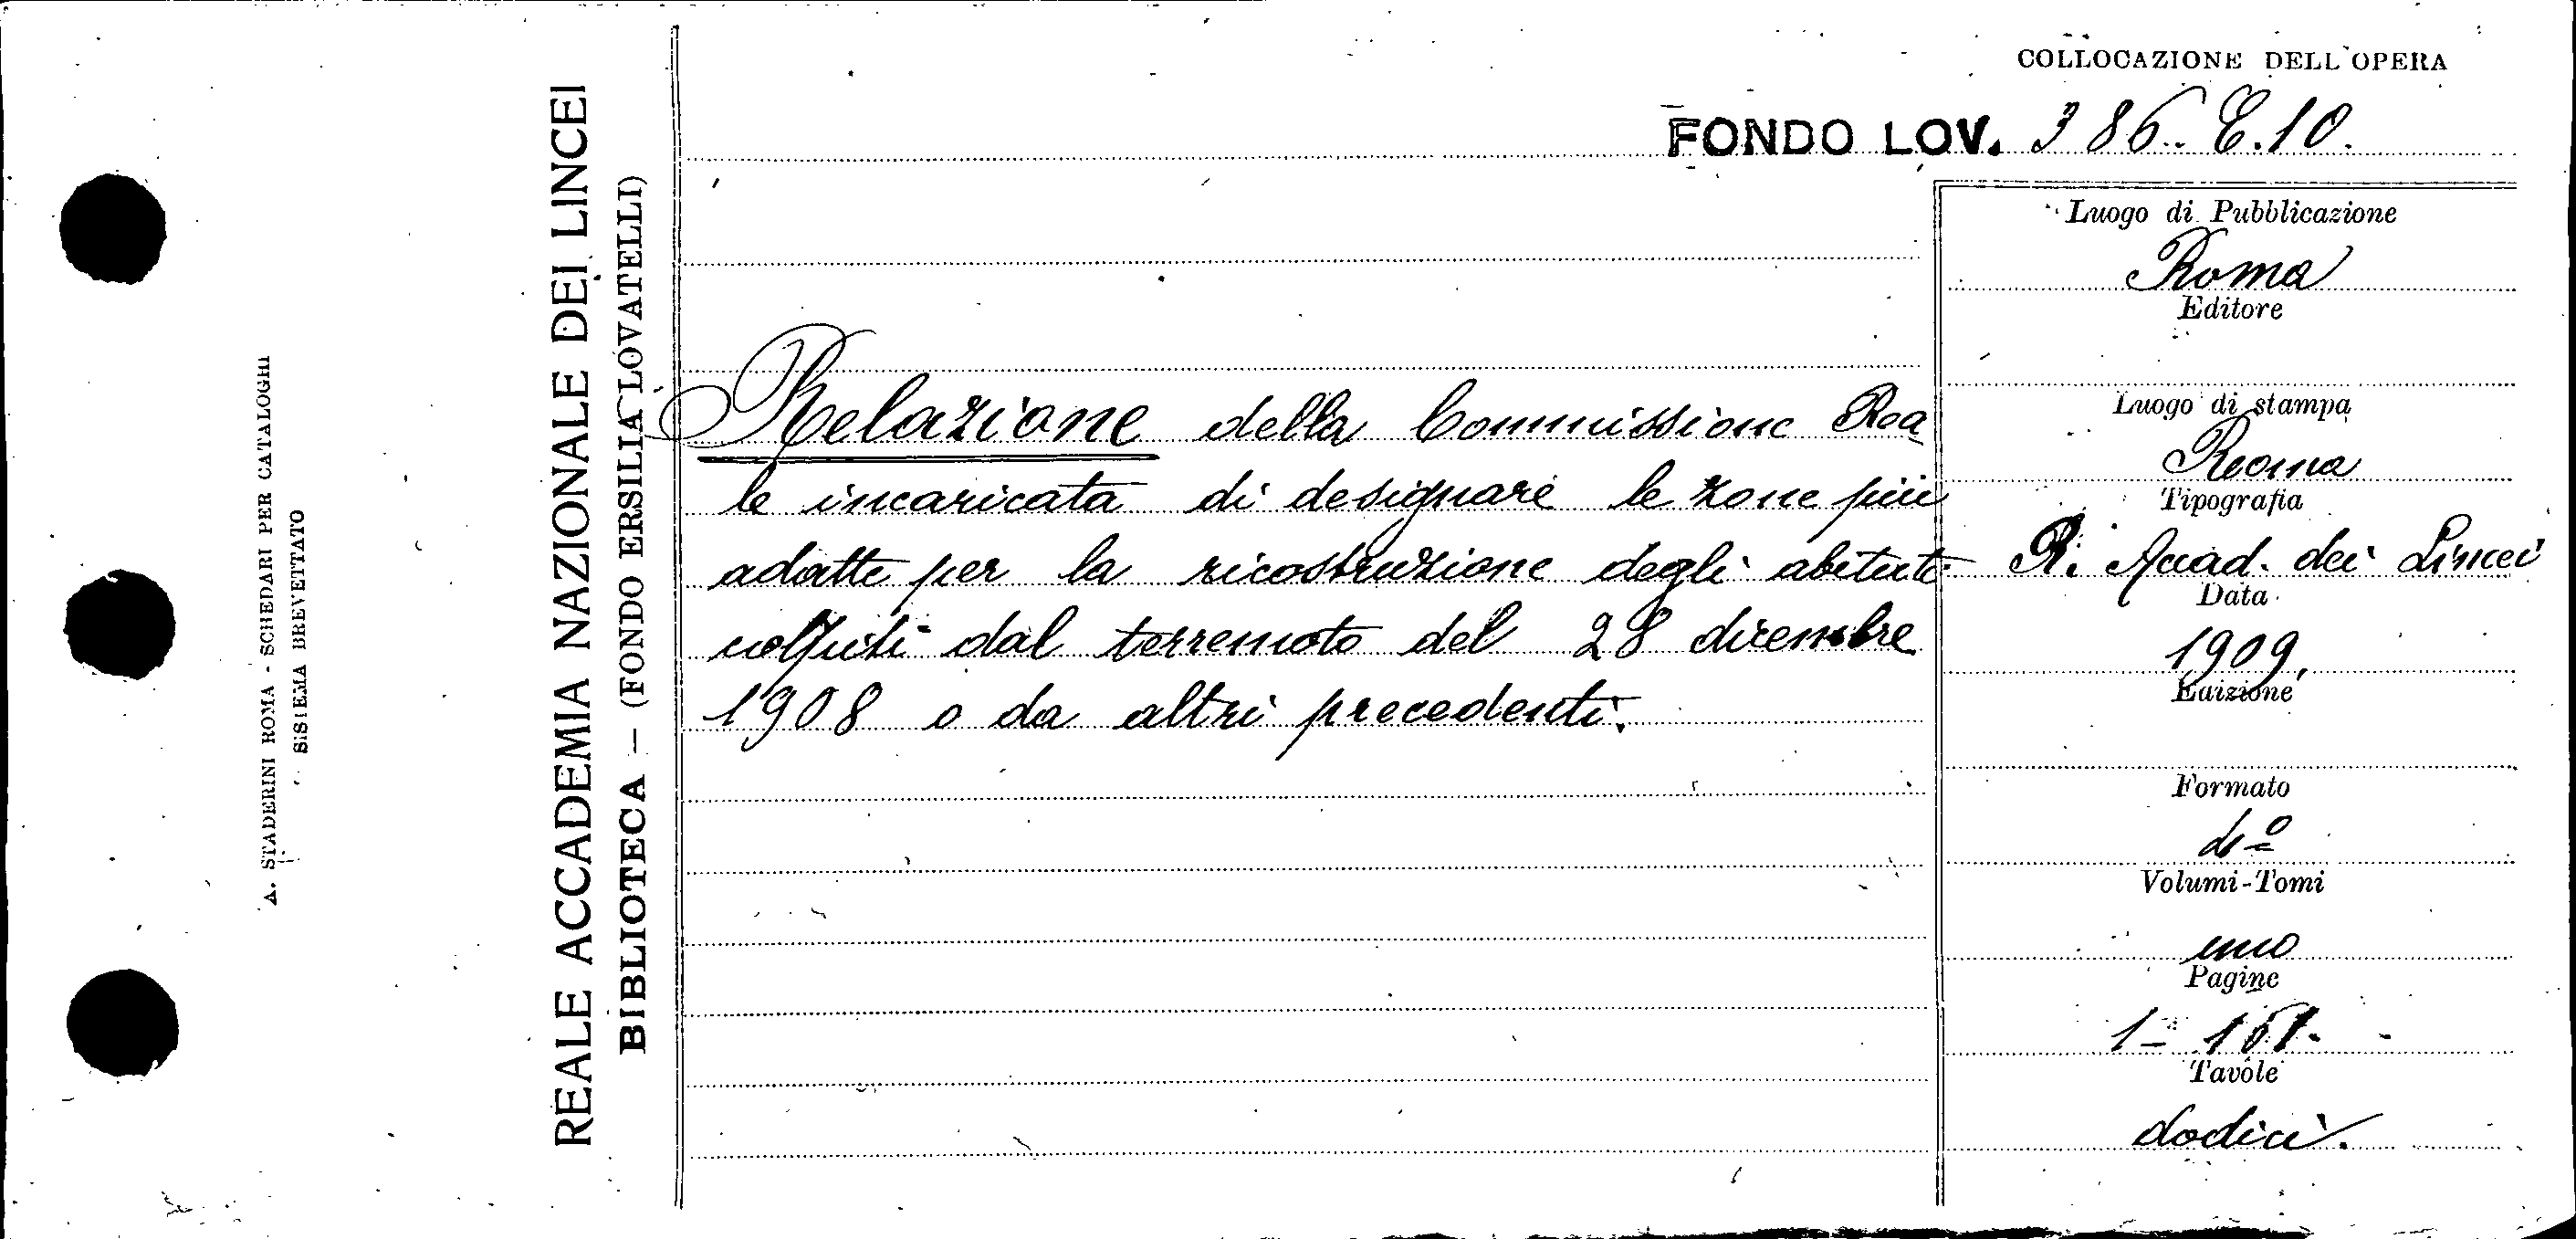 COLLOCAZIONE DELL'OPERA
FONDO LOV. 386. E.10.
A. STADERINI ROMA - SCHEDARI PER CATALOGHI
SISTEMA BREVETTATO
REALE ACCADEMIA NAZIONALE DEI LINCEI
BIBLIOTECA — (FONDO ERSILIA LOVATELLI)
Relazione della Commissione Rea
le incaricata di designare le zone più
adatte per la ricostruzione degli abitati
colpiti dal terremoto del 28 dicembre
1908 o da altri precedenti.
Luogo di Pubblicazione
Roma
Editore
Luogo di stampa
Roma
Tipografia
R. Accad. dei Lincei
Data
1909.
Edizione
Formato
4º
Volumi-Tomi
uno
Pagine
1-
Tavole
dodici.